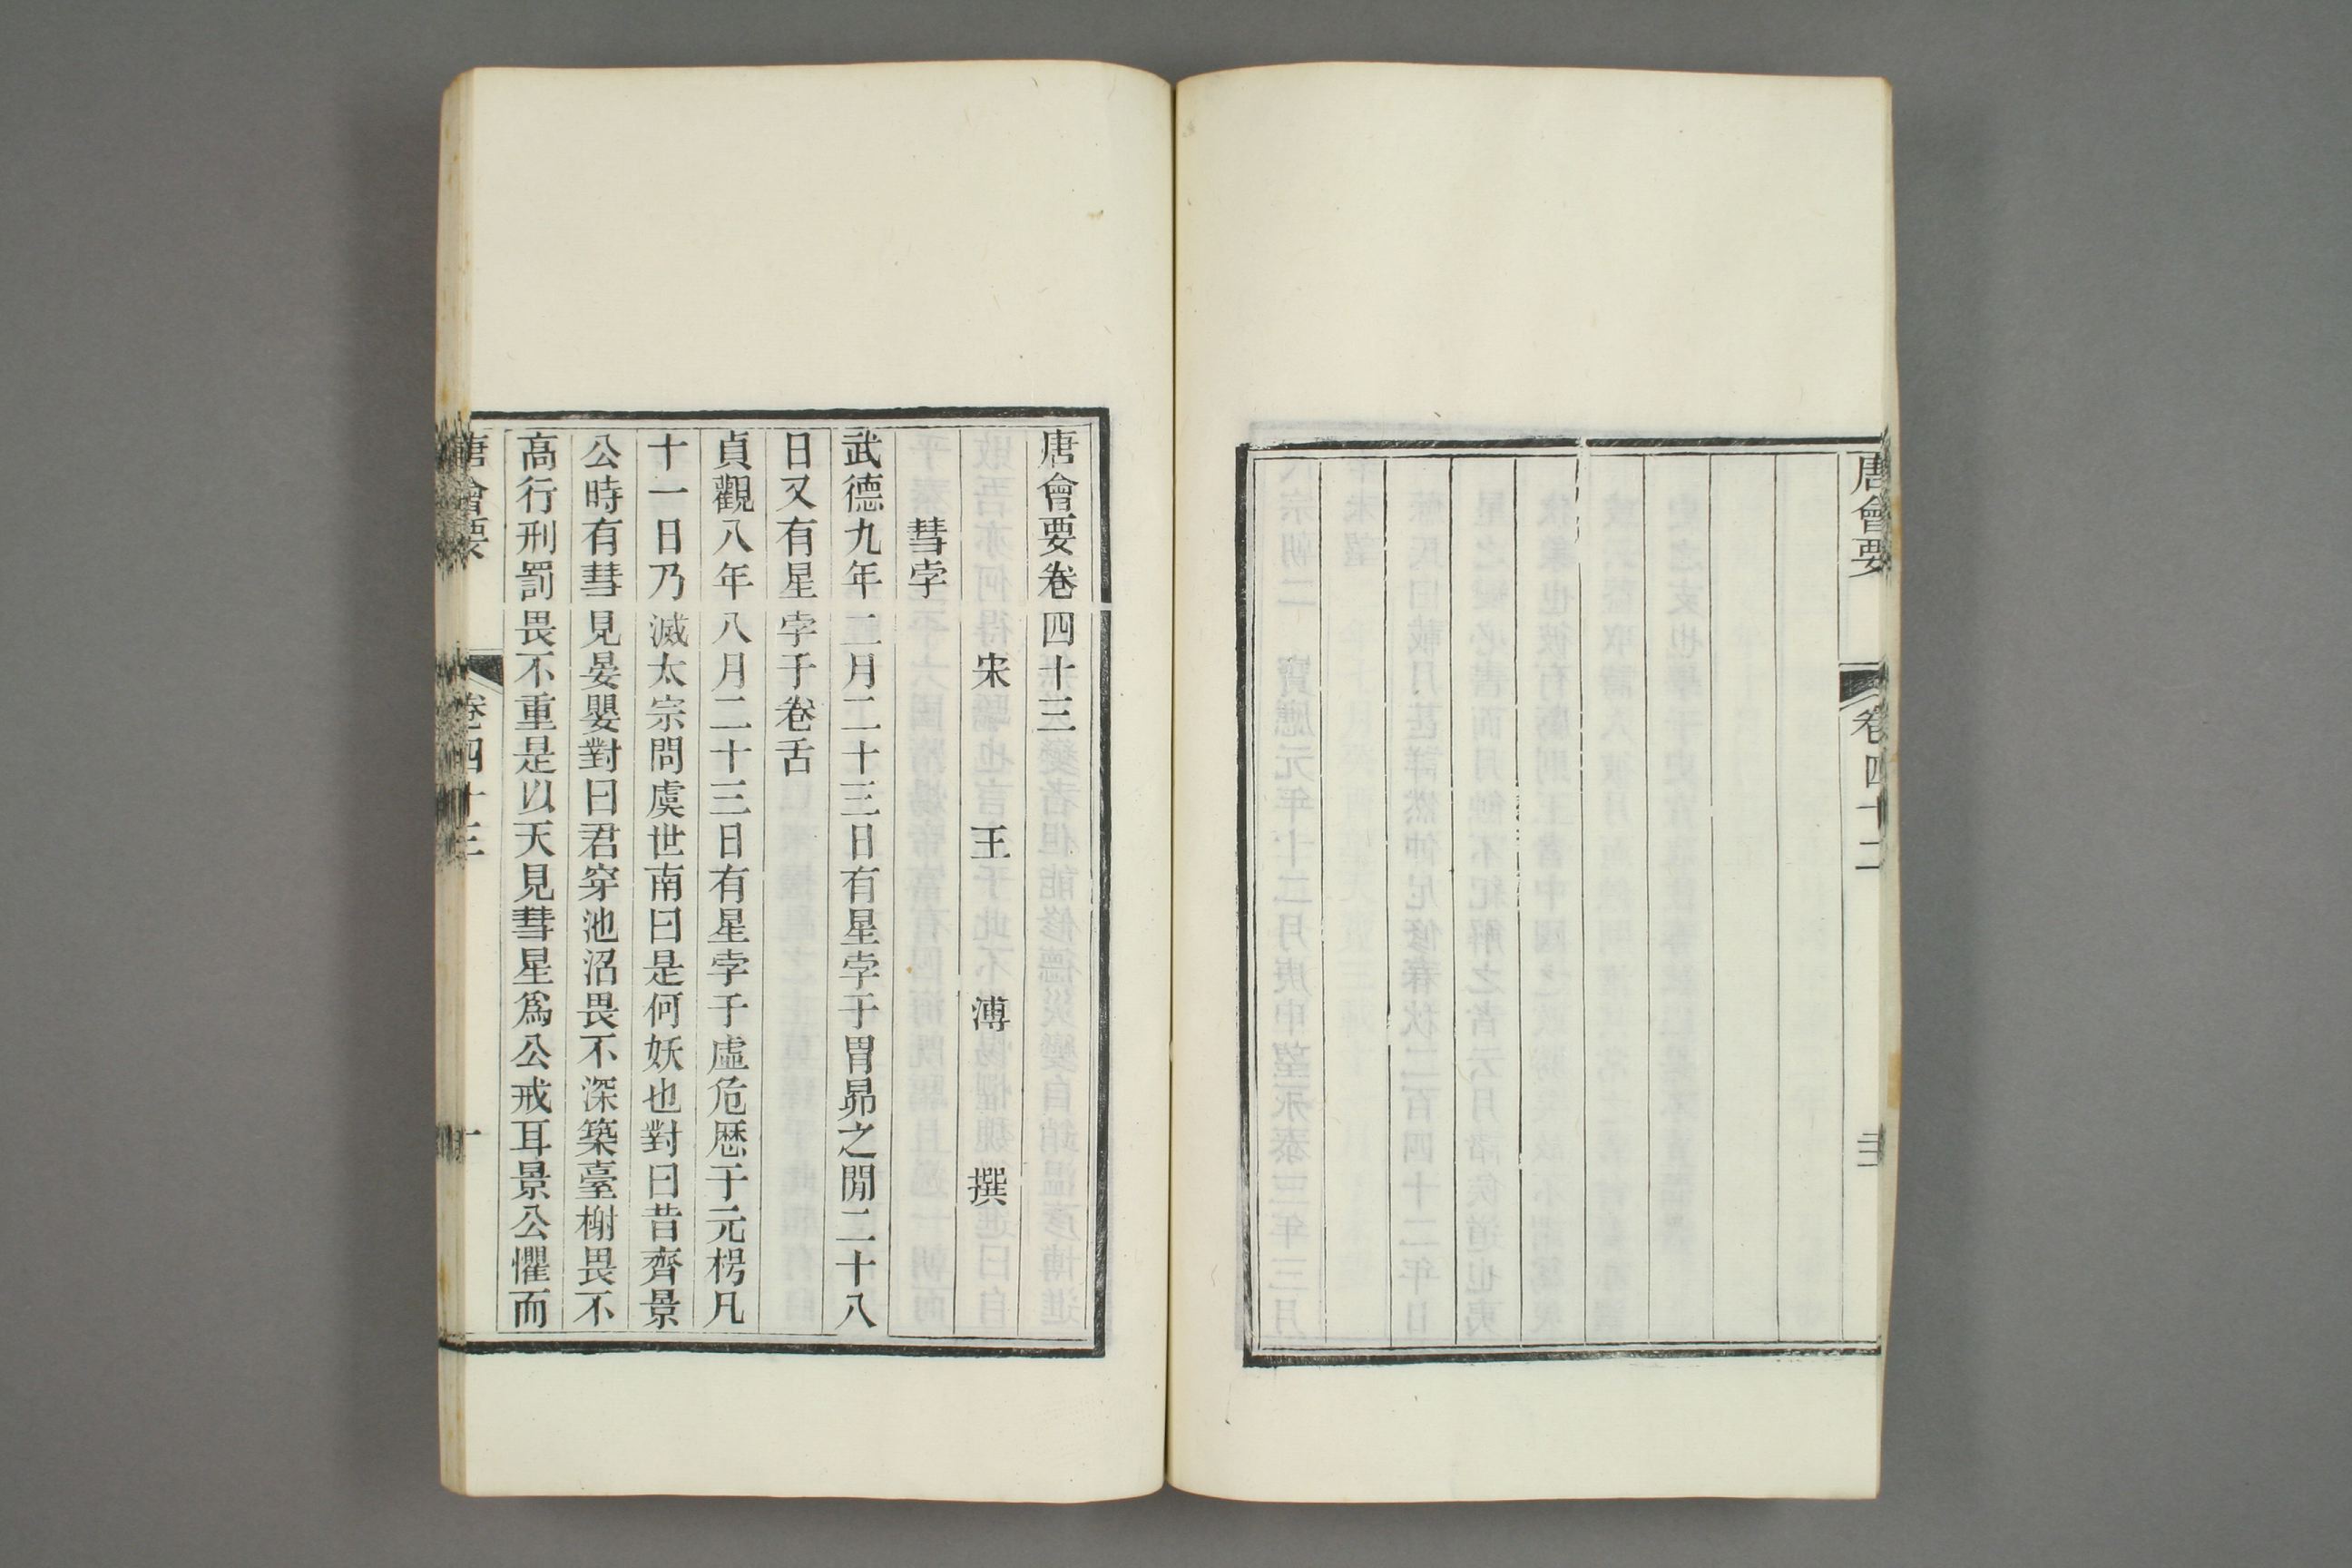 唐會要
卷四十二
唐會要卷四十三
宋 王 溥 撰
彗孛
武德九年二月二十三日有星孛于胃昴之閒二十八
日又有星孛于卷舌
貞觀八年八月二十三日有星孛于虛危歷于元枵凡
十一日乃滅太宗問虞世南曰是何妖也對曰昔齊景
公時有彗見晏嬰對曰君穿池沼畏不深築臺榭畏不
高行刑罰畏不重是以天見彗星爲公戒耳景公懼而
唐會要
卷四十三
一